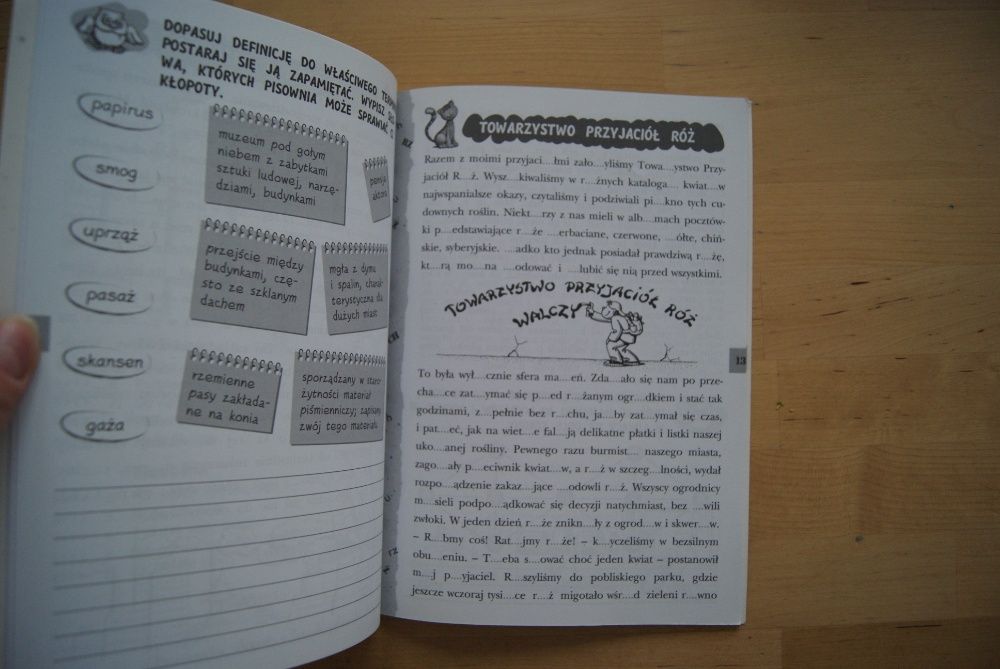 DOPASUJ DEFINICJĘ DO WŁAŚCIWEGO
POSTARAJ SIĘ JĄ ZAPAMIĘTAĆ. WYPISZ
WA, KTÓRYCH PISOWNIA MOŻE SPRAWIAĆ
KŁOPOTY.
papirus
smog
uprząż
pasaż
skansen
gaża
muzeum pod gołym
niebem z zabytkami
sztuki ludowej, narzę-
dziami, budynkami
pensja
aktora
przejście między
budynkami, czę-
sto ze szklanym
dachem
mgła z dymu
i spalin, charak-
terystyczna dla
dużych miast
rzemienne
pasy zakłada-
ne na konia
sporządzany w staro-
żytności materiał
piśmienniczy; zapisany
zwój tego materiału
TOWARZYSTWO PRZYJACIÓŁ RÓŻ
Razem z moimi przyjaci....łmi zało....yliśmy Towa....ystwo Przy-
jaciół R....ż. Wysz....kiwaliśmy w r....żnych kataloga.... kwiat....w
najwspanialsze okazy, czytaliśmy i podziwiali pi....kno tych cu-
downych roślin. Niekt....rzy z nas mieli w alb....mach pocztów-
ki p....edstawiające r....że ....erbaciane, czerwone, ....ółte, chiń-
skie, syberyjskie. ....adko kto jednak posiadał prawdziwą r....żę,
kt....rą mo....na ....odować i ....lubić się nią przed wszystkimi.
TOWARZYSTWO PRZYJACIÓŁ RÓŻ
WALCZY
13
To była wył....cznie sfera ma....eń. Zda....ało się nam po prze-
cha....ce zat....ymać się p....ed r....żanym ogr....dkiem i stać tak
godzinami, z....pełnie bez r....chu, ja....by zat....ymał się czas,
i pat....eć, jak na wiet....e fal....ją delikatne płatki i listki naszej
uko....anej rośliny. Pewnego razu burmist.... naszego miasta,
zago....ały p....eciwnik kwiat....w, a r....ż w szczeg....lności, wydał
rozpo....ądzenie zakaz....jące ....odowli r....ż. Wszyscy ogrodnicy
m....sieli podpo....ądkować się decyzji natychmiast, bez ....wili
zwłoki. W jeden dzień r....że znikn....ły z ogrod....w i skwer....w.
– R....bmy coś! Rat....jmy r....że! – k....yczeliśmy w bezsilnym
obu....eniu. – T....eba s....ować choć jeden kwiat – postanowił
m....j p....yjaciel. R....szyliśmy do pobliskiego parku, gdzie
jeszcze wczoraj tysi....ce r....ż migotało wśr....d zieleni r....wno